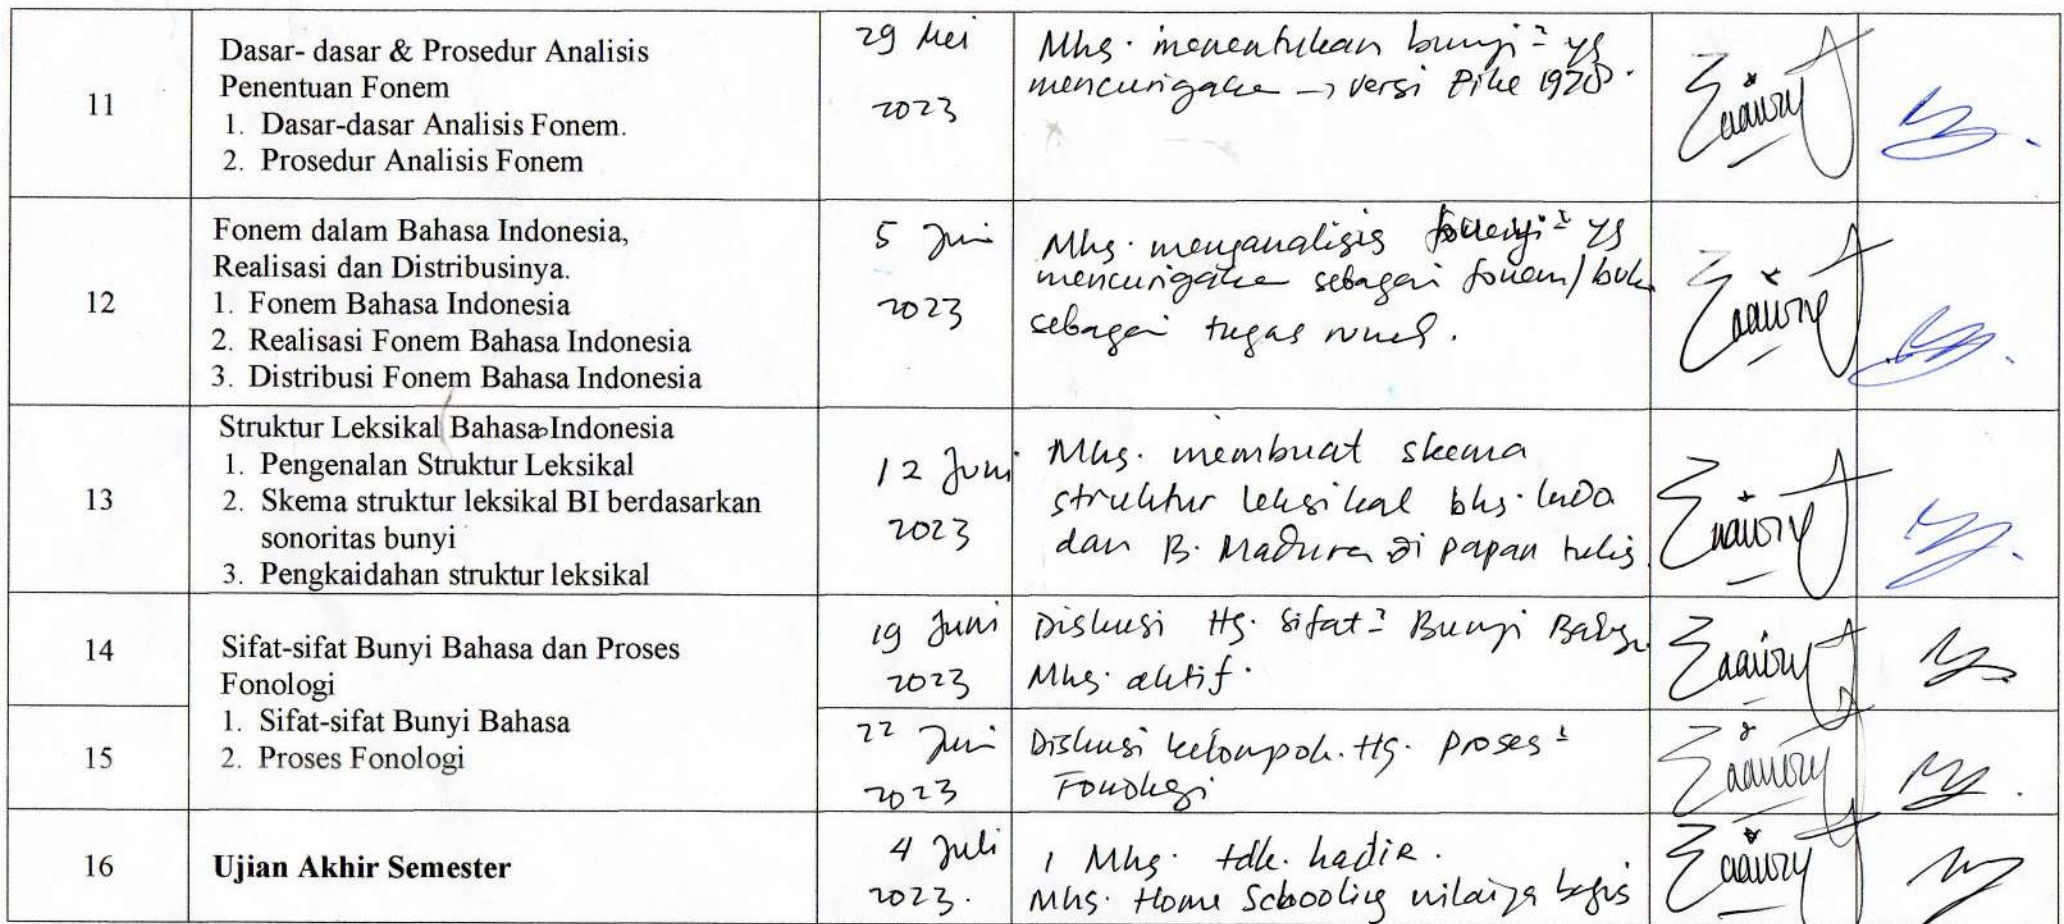 11
Dasar- dasar & Prosedur Analisis
Penentuan Fonem
1. Dasar-dasar Analisis Fonem.
2. Prosedur Analisis Fonem
29 Mei
2023
Mhs. menentukan bunyi² yg
mencurigakan → versi Pike 1978.
12
Fonem dalam Bahasa Indonesia,
Realisasi dan Distribusinya.
1. Fonem Bahasa Indonesia
2. Realisasi Fonem Bahasa Indonesia
3. Distribusi Fonem Bahasa Indonesia
5 Juni
2023
Mhs. menganalisis yg
mencurigakan sebagai fonem/
sebagai tugas
13
Struktur Leksikal Bahasa Indonesia
1. Pengenalan Struktur Leksikal
2. Skema struktur leksikal BI berdasarkan
sonoritas bunyi
3. Pengkaidahan struktur leksikal
12 Juni
2023
Mhs. membuat skema
struktur leksikal bhs. Indo
dan B. Madura di papan tulis
14
Sifat-sifat Bunyi Bahasa dan Proses
Fonologi
1. Sifat-sifat Bunyi Bahasa
2. Proses Fonologi
19 Juni
2023
Diskusi ttg. Sifat² Bunyi
Mhs. aktif.
15
22 Juni
2023
Diskusi kelompok. ttg. proses²
Fonologi
16
Ujian Akhir Semester
4 Juli
2023.
1 Mhs. tdk. hadir.
Mhs. Home Schooling nilainya bagus